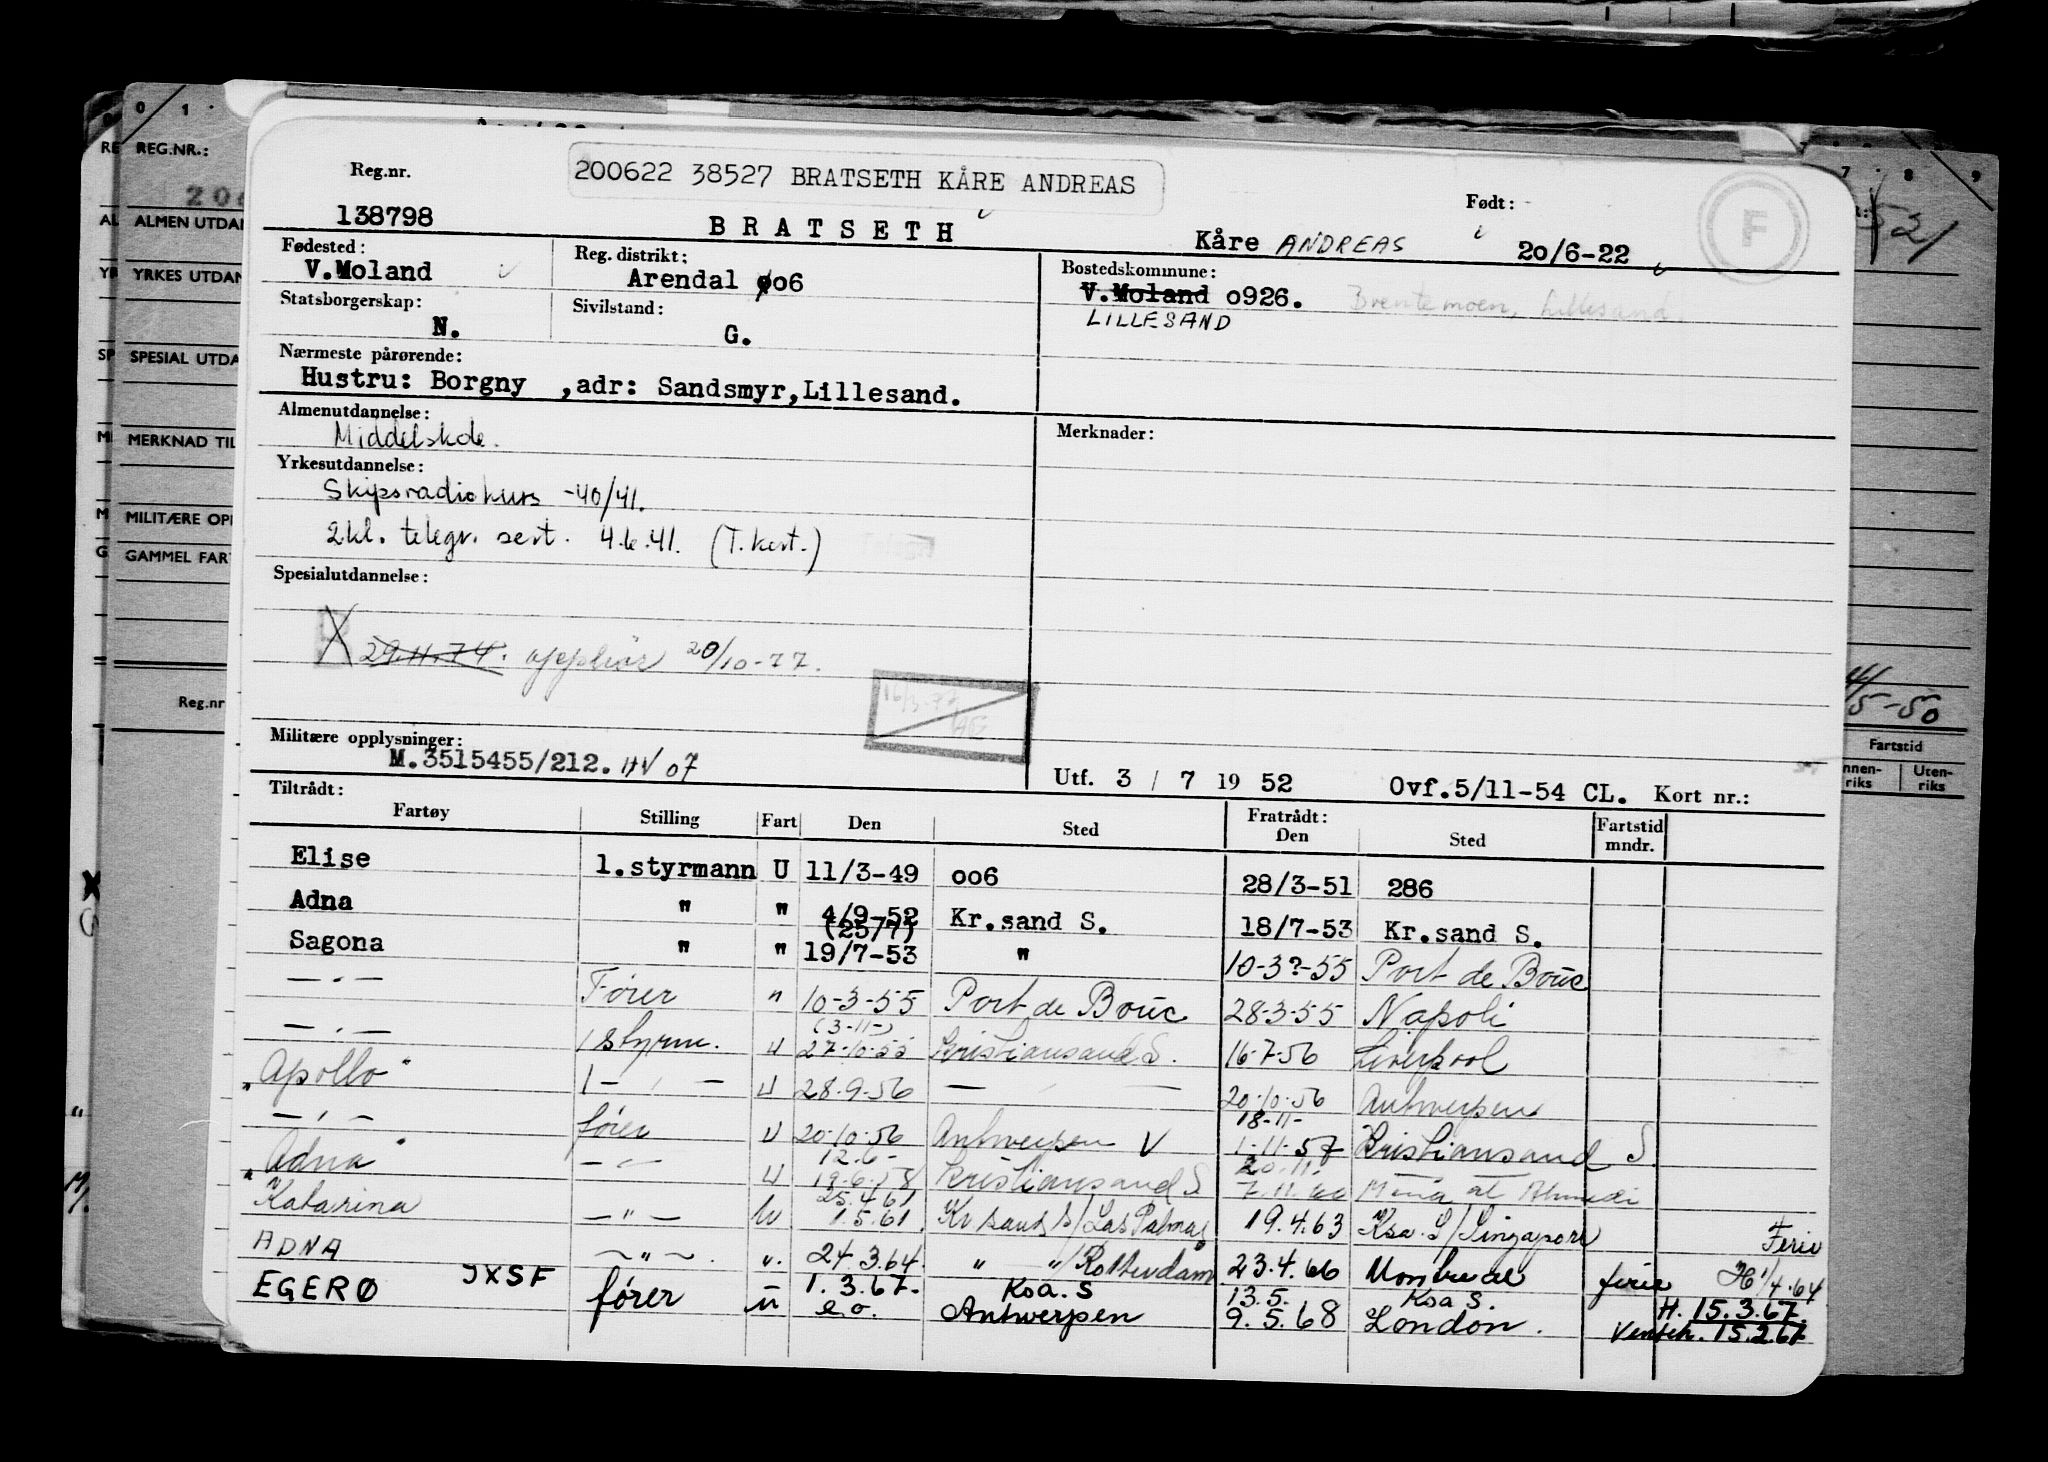 0 1
REG.NR.:
ALMEN UTDAN
YRKES UTDAN
SPESIAL UTDA
MERKNAD TIL
MILITÆRE OPP
GAMMEL FART
Reg.nr
Reg.nr. 200622 38527 BRATSETH KÅRE ANDREAS Født:
138798 BRATSETH Kåre ANDREAS 20/6-22
F
Fødested: Reg. distrikt: Bostedskommune:
V.Moland Arendal 006 V.Moland 0926. Brentemoen, Lillesand.
Statsborgerskap: Sivilstand: LILLESAND
N. G.
Nærmeste pårørende:
Hustru: Borgny ,adr: Sandsmyr,Lillesand.
Almenutdannelse: Merknader:
Middelskole.
Yrkesutdannelse:
Skipsradiokurs -40/41.
2kl. telegr. sert. 4.6.41. (T.kert.)
Spesialutdannelse:
X 29.11.74. opphør 20/10-77.
16/3-77
Militære opplysninger:
M.3515455/212. HV 07
Utf. 3 / 7 19 52 Ovf.5/11-54 CL. Kort nr.:
Tiltrådt: Fratrådt:
Fartøy Stilling Fart Den Sted Den Sted Fartstid mndr.
Elise 1.styrmann U 11/3-49 006 28/3-51 286
Adna " " 4/9-52 (25/7) Kr.sand S. 18/7-53 Kr.sand S.
Sagona " " 19/7-53 " 10-3?-55 Port de Bouc
— " — Fører " 10-3-55 Port de Bouc 28-3-55 Napoli
— " — 1 styrm. U (3-11-) 27-10-55 Kristiansand S. 16-7-56 Liverpool
"Apollo" 1 — " — U 28.9-56 — " — 20.10.56 Antwerpen
— " — fører U 20.10.56 Antwerpen V 18-11- 1-11-57 Kristiansand S
"Adna" — " — U 12.6- 19.6.58 Kristiansand S 20.11- 7.11.60 Mena al Ahmadi
"Katarina — " — U 25.4.61 1.5.61 Kr sand S/Las Palmas 19.4.63 Ksa. S/Singapore Ferie
ADNA — " — . ". 24.3.64. " "/Rotterdam 23.4.66 Montreal ferie H 1/4.64
EGERØ JXSF fører U 1.3.67. e.o. Ksa. S Antwerpen 13.5. 9.5.68 Ksa S. London. H. 15.3.67. Venteh. 15.2.67
7 8 9
52/
4/5-50
Fartstid
nnen-
riks
Uten-
riks